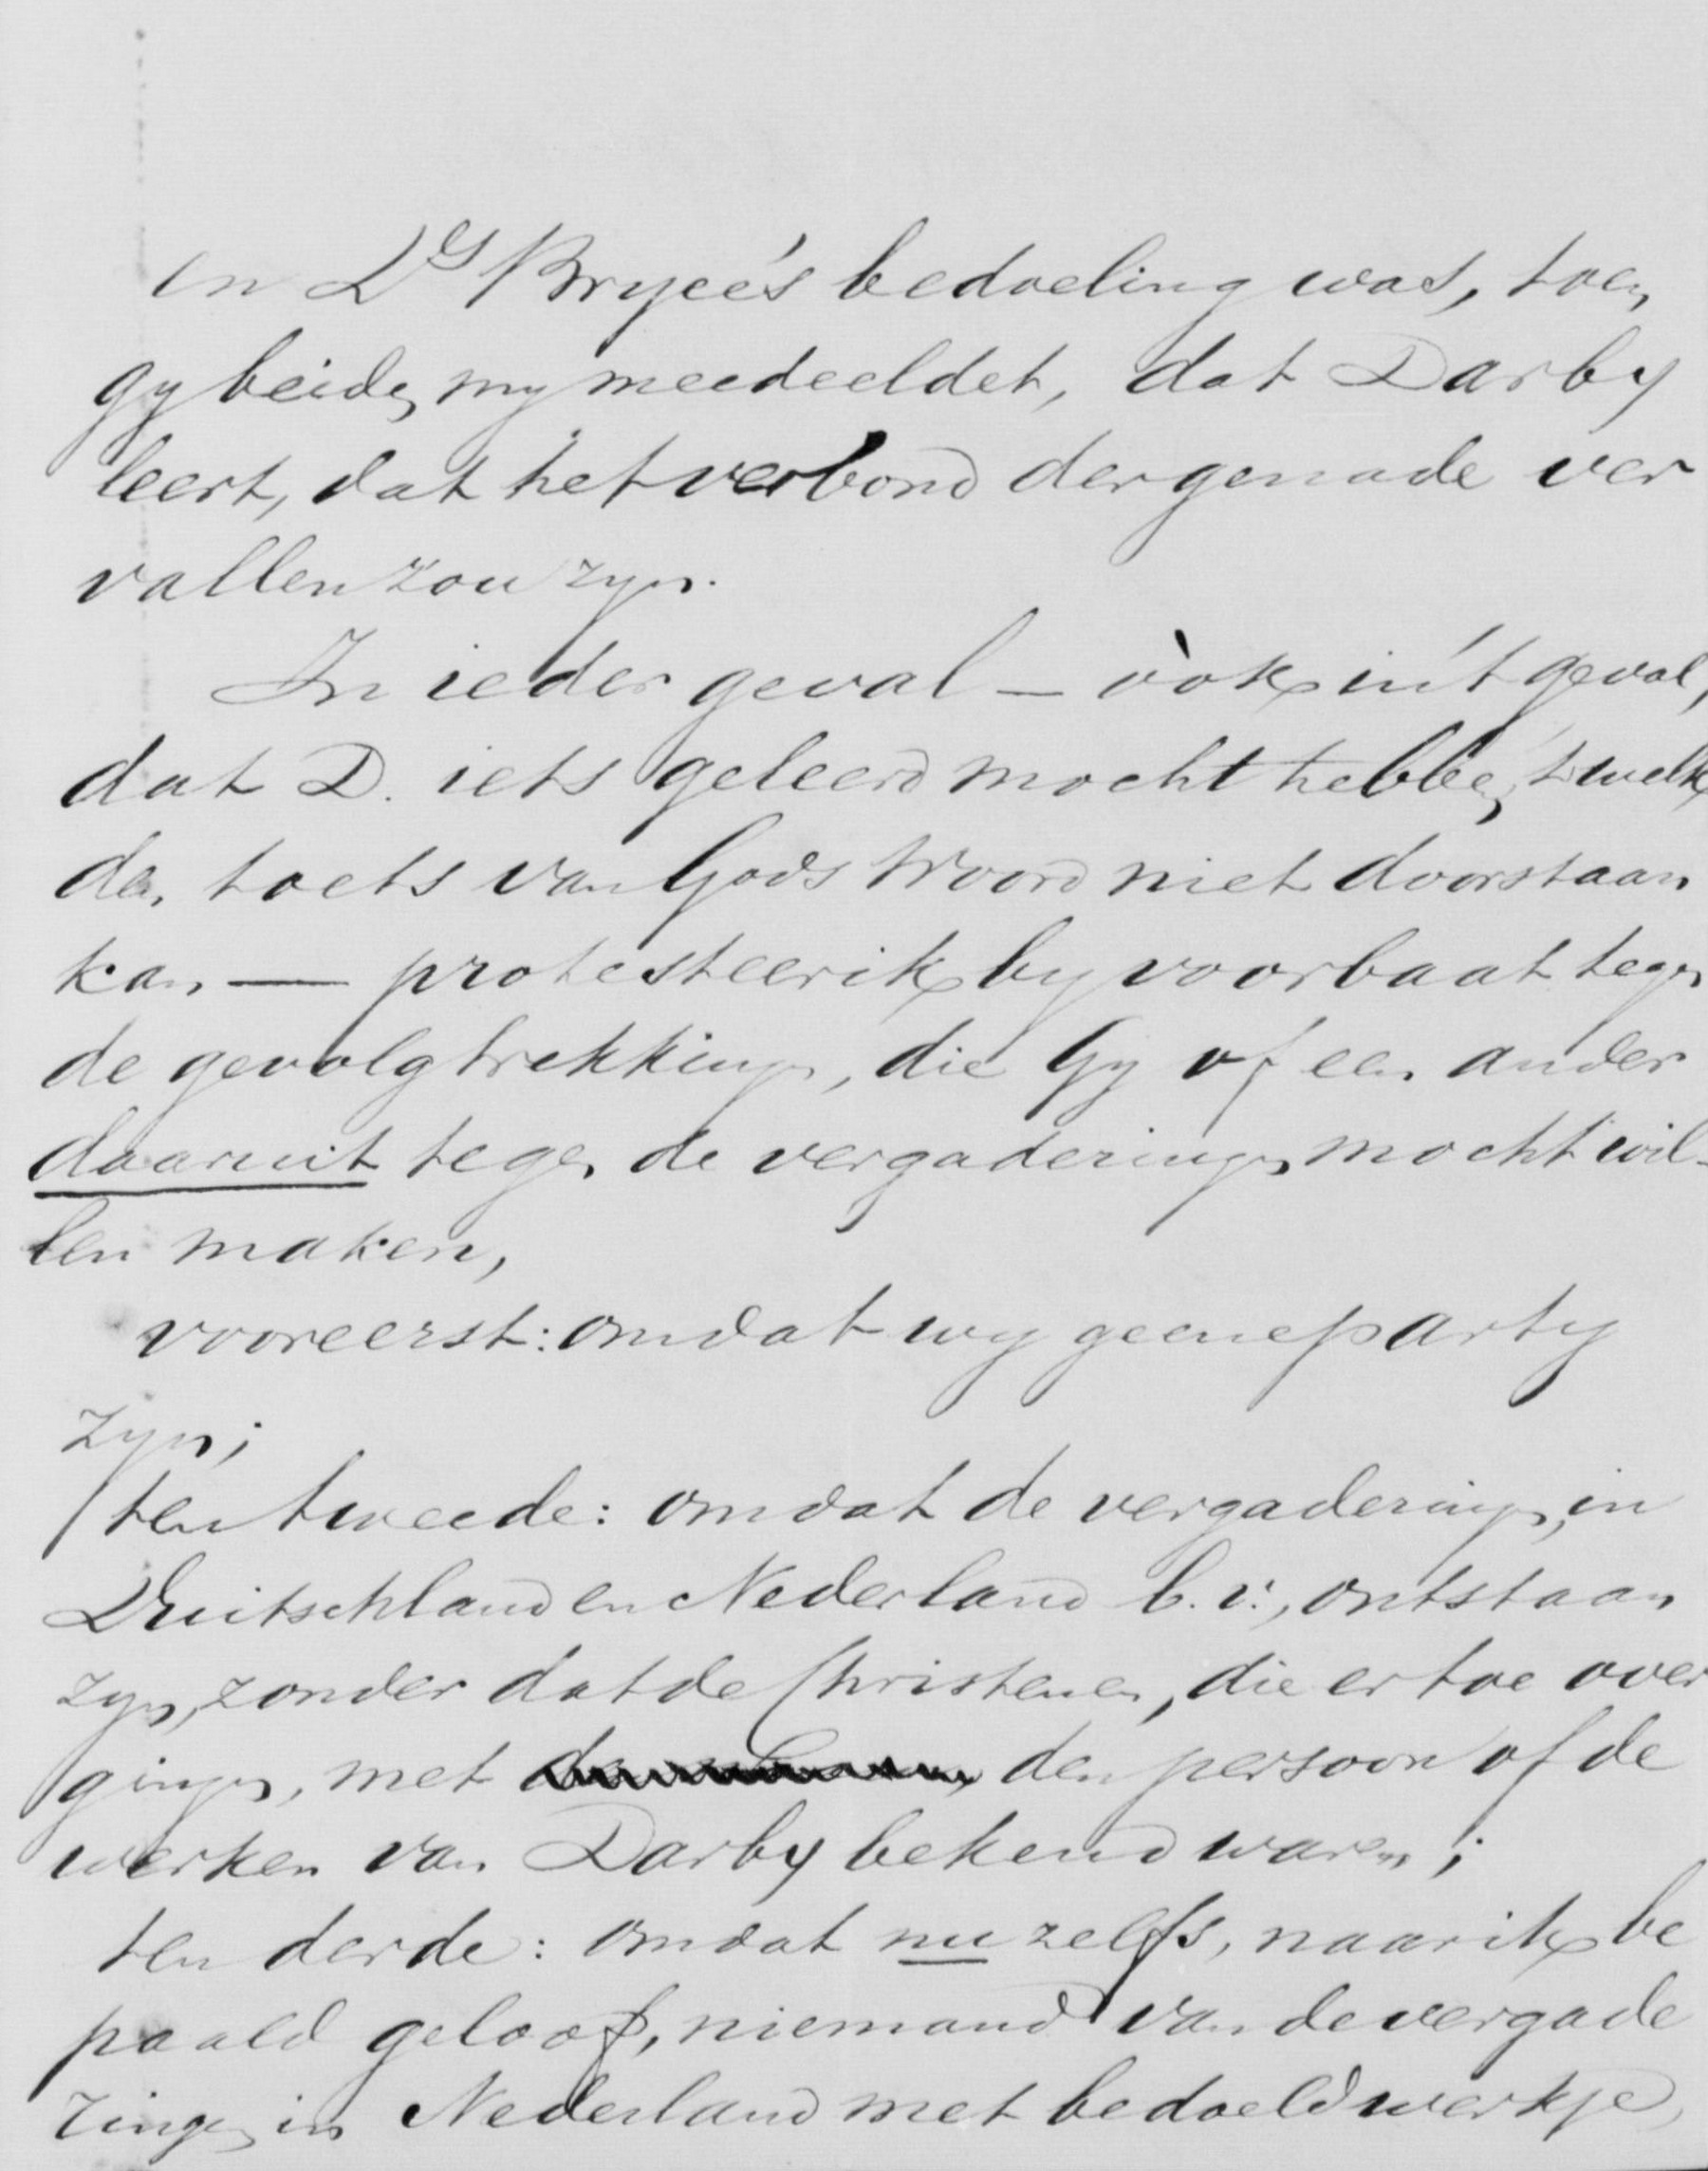 en Ds Bryce's bedoeling was, toen
gy beiden my meedeeldet, dat Darby
leert, dat het verbond der genade ver
vallen zou zyn.
In ieder geval — òok in 't geval,
dat D. iets geleerd mocht hebben, 't welk
den toets van Gods Woord niet doorstaan
kan — protesteer ik by voorbaat tegen
de gevolgtrekkingen, die Gy of een ander
daaruit tegen de vergaderingen mocht wil-
len maken,
vooreerst: omdat wy geene party
zyn;
ten tweede: omdat de vergaderingen, in
Duitschland en Nederland b.v., ontstaan
zyn, zonder dat de Christenen, die er toe over
gingen, met den persoon of de
werken van Darby bekend waren;
ten derde: omdat nu zelfs, naar ik be
paald geloof, niemand van de vergade
ringen in Nederland met bedoeld werkje,